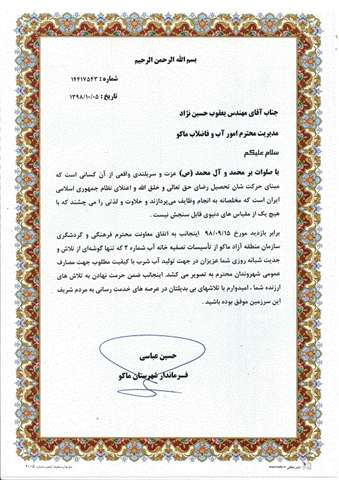 بسم الله الرحمن الرحیم
شماره : ۱۴۴۱۷۵۴۳
تاریخ : ۱۳۹۸/۱۰/۰۵
جناب آقای مهندس یعقوب حسین نژاد
مدیریت محترم امور آب و فاضلاب ماکو
سلام علیکم
با صلوات بر محمد و آل محمد (ص) عزت و سربلندی واقعی از آن کسانی است که
مبنای حرکت شان تحصیل رضای حق تعالی و خلق الله و اعتلای نظام جمهوری اسلامی
ایران است که مخلصانه به انجام وظایف می‌پردازند و حلاوت و لذتی را می چشند که با
هیچ یک از مقیاس های دنیوی قابل سنجش نیست .
برابر بازدید مورخ ۹۸/۰۹/۱۵ اینجانب به اتفاق معاونت محترم فرهنگی و گردشگری
سازمان منطقه آزاد ماکو از تأسیسات تصفیه خانه آب شماره ۲ که تنها گوشه‌ای از تلاش و
جدیت شبانه روزی شما عزیزان در جهت تولید آب شرب با کیفیت مطلوب جهت مصارف
عمومی شهروندان محترم به تصویر می کشد. اینجانب ضمن حرمت نهادن به تلاش های
ارزنده شما ، امیدوارم با تلاشهای بی بدیلتان در عرصه های خدمت رسانی به مردم شریف
این سرزمین موفق بوده باشید .
حسین عباسی
فرماندار شهرستان ماکو